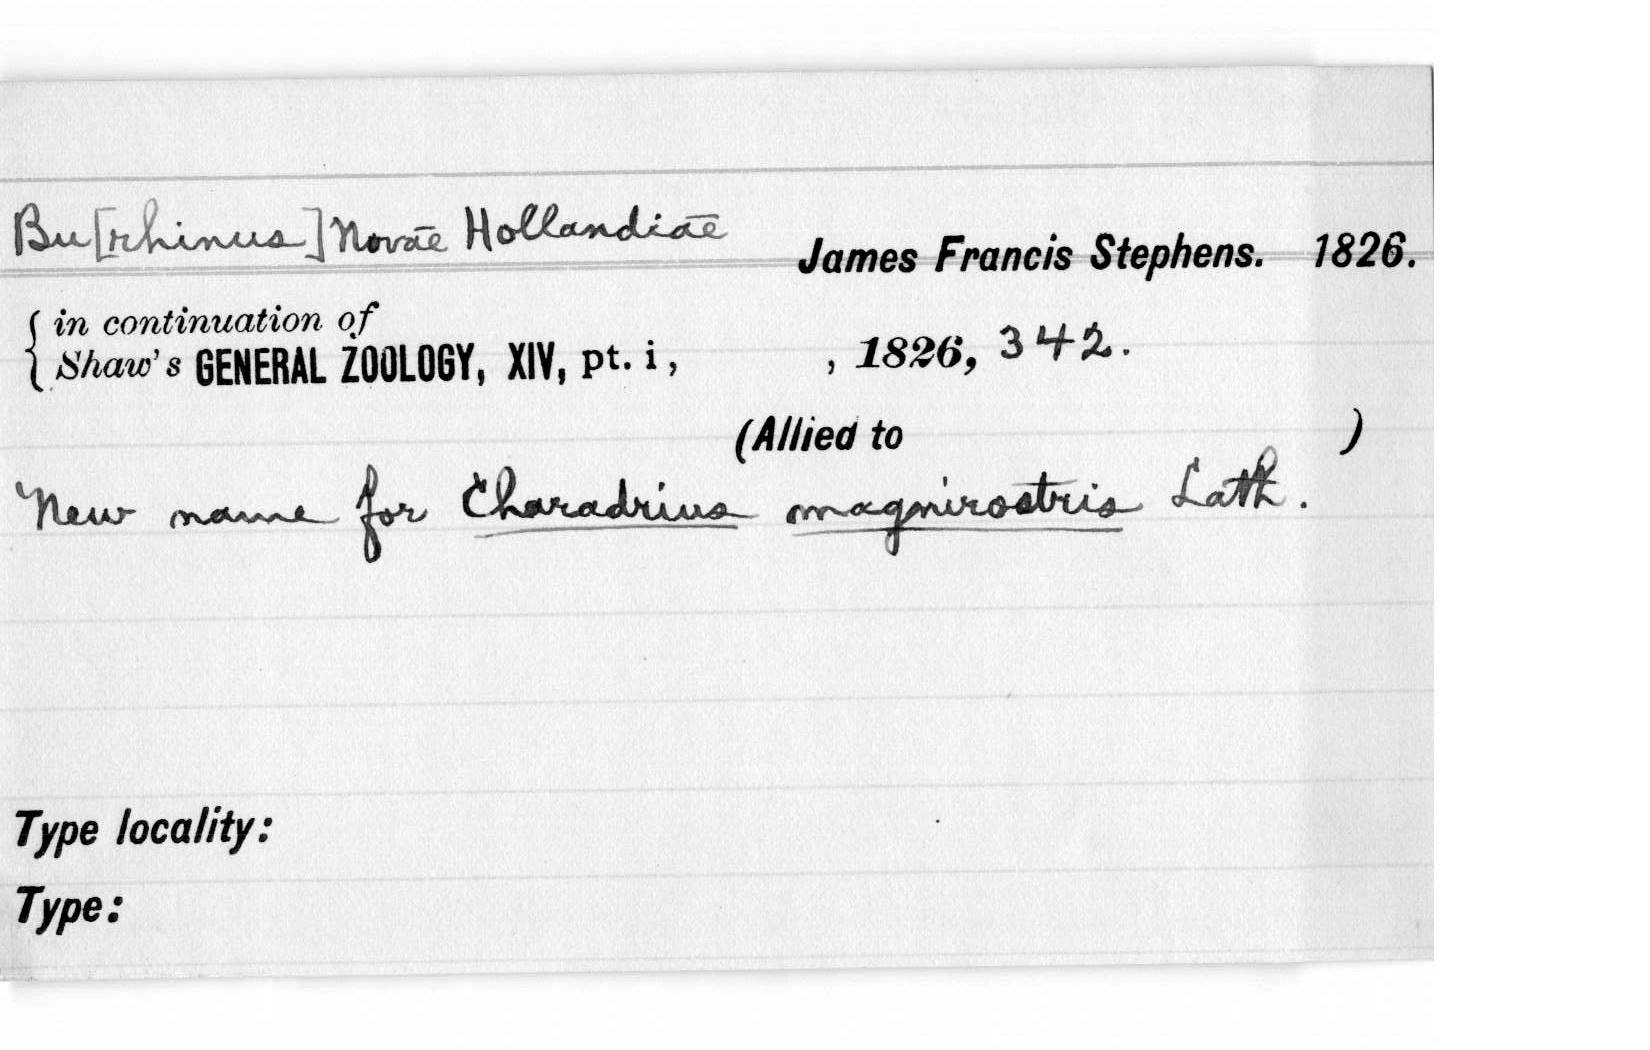 Bu[rhinus] Novae Hollandiae James Francis Stephens. 1826.
in continuation of
Shaw's GENERAL ZOOLOGY, XIV, pt. i, , 1826, 342.
(Allied to )
New name for Charadrius magnirostris Lath.
Type locality:
Type: